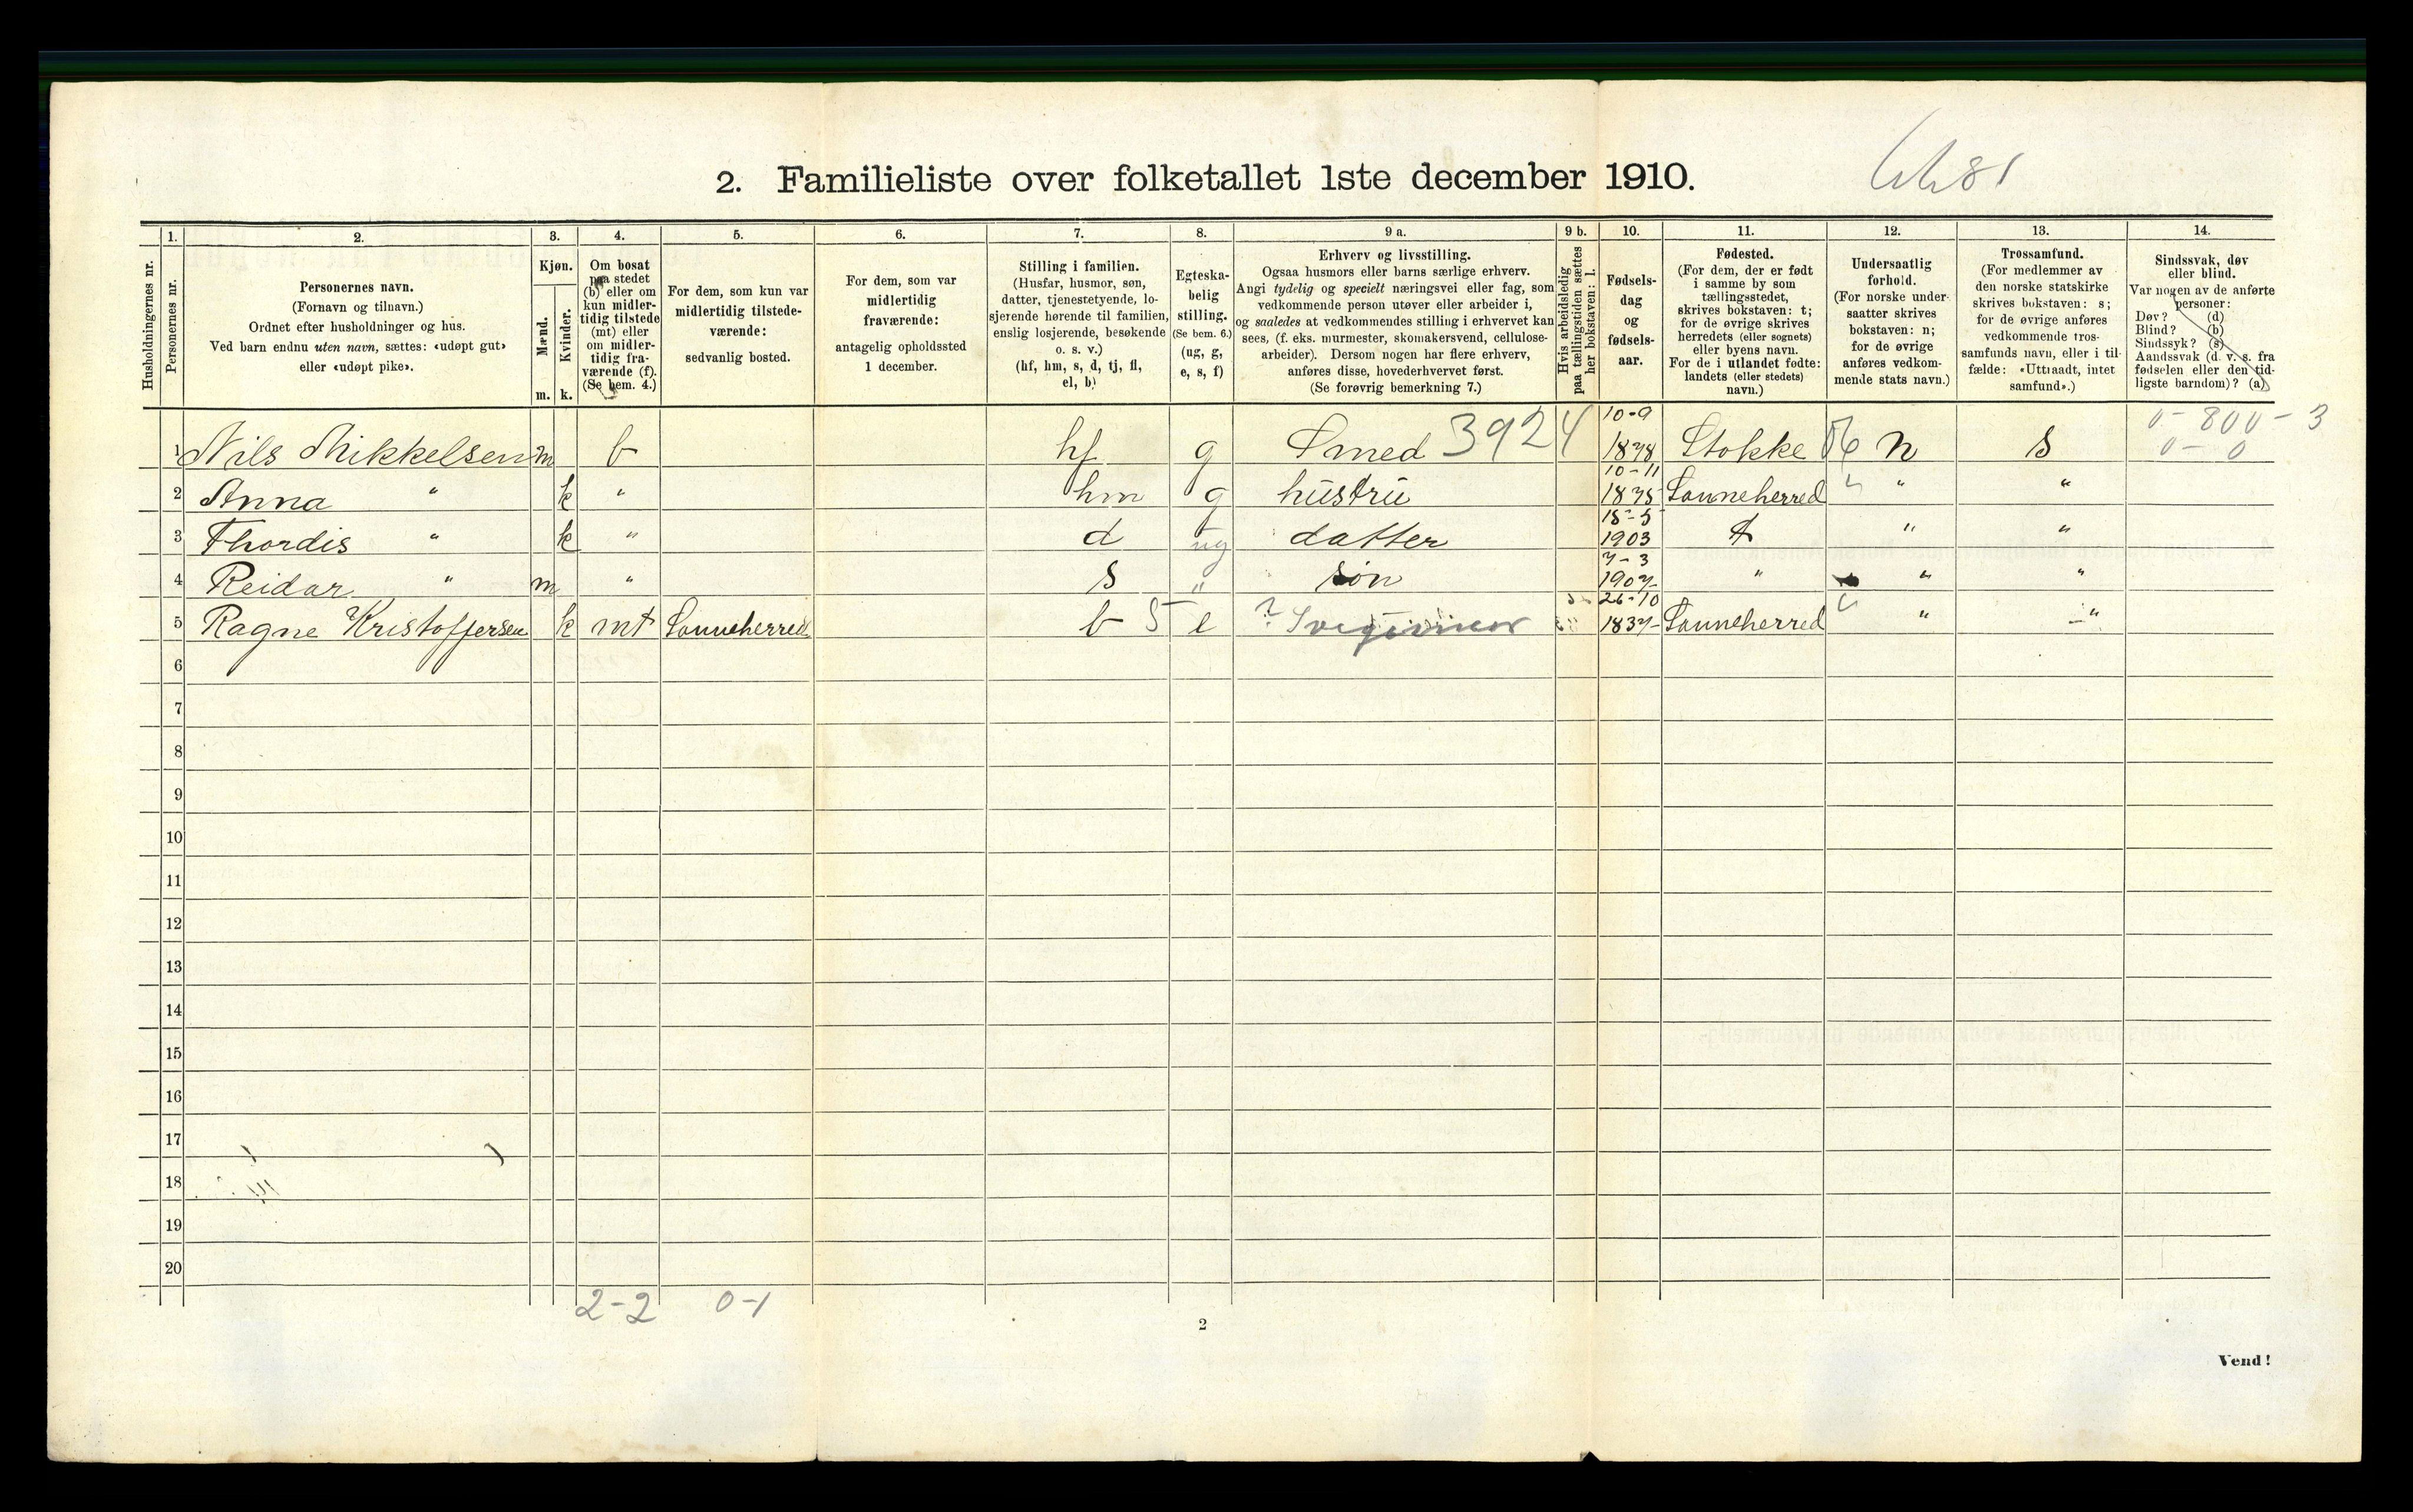 2. Familieliste over folketallet 1ste december 1910.
1. 2. 3. 4. 5. 6. 7. 8. 9 a. 9 b. 10. 11. 12. 13. 14.
Husholdningernes nr.
Personernes nr.
Personernes navn.
(Fornavn og tilnavn.)
Ordnet efter husholdninger og hus.
Ved barn endnu uten navn, sættes: «udøpt gut»
eller «udøpt pike».
Kjøn.
Mænd.
Kvinder.
m. k.
Om bosat
paa stedet
(b) eller om
kun midler-
tidig tilstede
(mt) eller
om midler-
tidig fra-
værende (f).
(Se bem. 4.)
For dem, som kun var
midlertidig tilstede-
værende:
sedvanlig bosted.
For dem, som var
midlertidig
fraværende:
antagelig opholdssted
1 december.
Stilling i familien.
(Husfar, husmor, søn,
datter, tjenestetyende, lo-
sjerende hørende til familien,
enslig losjerende, besøkende
o. s. v.)
(hf, hm, s, d, tj, fl,
el, b)
Egteska-
belig
stilling.
(Se bem. 6.)
(ug, g,
e, s, f)
Erhverv og livsstilling.
Ogsaa husmors eller barns særlige erhverv.
Angi tydelig og specielt næringsvei eller fag, som
vedkommende person utøver eller arbeider i,
og saaledes at vedkommendes stilling i erhvervet kan
sees, (f. eks. murmester, skomakersvend, cellulose-
arbeider). Dersom nogen har flere erhverv,
anføres disse, hovederhvervet først.
(Se forøvrig bemerkning 7.)
Hvis arbeidsledig
paa tællingstiden sættes
her bokstaven: l.
Fødsels-
dag
og
fødsels-
aar.
Fødested.
(For dem, der er født
i samme by som
tællingsstedet,
skrives bokstaven: t;
for de øvrige skrives
herredets (eller sognets)
eller byens navn.
For de i utlandet fødte:
landets (eller stedets)
navn.)
Undersaatlig
forhold.
(For norske under-
saatter skrives
bokstaven: n;
for de øvrige
anføres vedkom-
mende stats navn.)
Trossamfund.
(For medlemmer av
den norske statskirke
skrives bokstaven: s;
for de øvrige anføres
vedkommende tros-
samfunds navn, eller i til-
fælde: «Uttraadt, intet
samfund».)
Sindssvak, døv
eller blind.
Var nogen av de anførte
personer:
Døv? (d)
Blind? (b)
Sindssyk? (s)
Aandssvak (d. v. s. fra
fødselen eller den tid-
ligste barndom)? (a)
10-9 0-800-3
1 Nils Mikkelsen m b hf g Smed 3924 1878 Stokke n s 0-0
10-11
2 Anna " k " hm g hustru 1875 Sanneherred " "
18-5
3 Thordis " k " d ug datter 1903 t " "
7-3
4 Reidar " m " s " søn 1907 " " "
26-10
5 Ragne Kristoffersen k mt Sanneherred b 5 e ? 1837 Sanneherred " "
6
7
8
9
10
11
12
13
14
15
16
17
18
19
20
2-2 0-1
2
Vend!